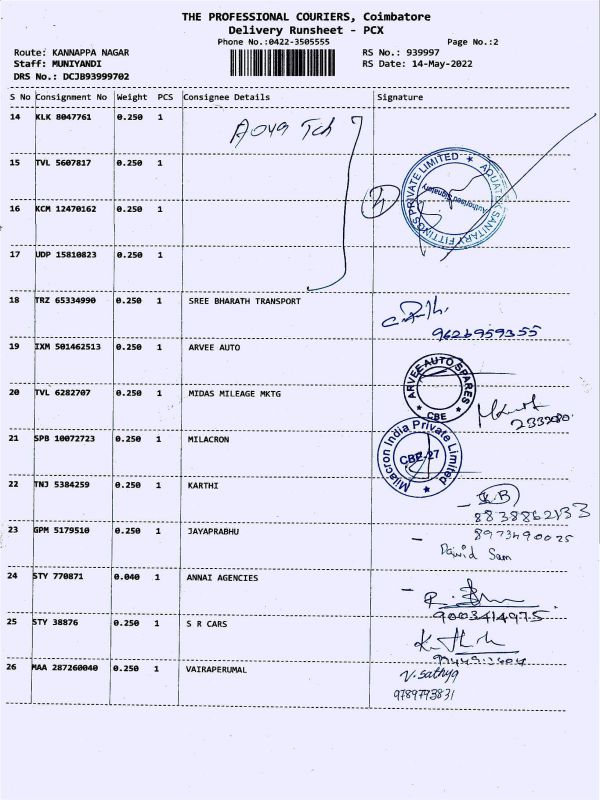 THE PROFESSIONAL COURIERS, Coimbatore
Delivery Runsheet - PCX
Phone No.:0422-3505555 Page No.:2
Route: KANNAPPA NAGAR RS No.: 939997
Staff: MUNIYANDI RS Date: 14-May-2022
DRS No.: DCJB93999702
S No Consignment No Weight PCS Consignee Details Signature
14 KLK 8047761 0.250 1
15 TVL 5607817 0.250 1
AQUATEK SANITARY FITTINGS PRIVATE LIMITED
Authorised Signatory
16 KCM 12470162 0.250 1
17 UDP 15810823 0.250 1
18 TRZ 65334990 0.250 1 SREE BHARATH TRANSPORT
9626959355
19 IXM 501462513 0.250 1 ARVEE AUTO
ARVEE AUTO SPARES
CBE
20 TVL 6282707 0.250 1 MIDAS MILEAGE MKTG
21 SPB 10072723 0.250 1 MILACRON
Milacron India Private Limited
CBE-27
22 TNJ 5384259 0.250 1 KARTHI
8838862133
23 GPM 5179510 0.250 1 JAYAPRABHU
8973490025
Dawid Sam
24 STY 770871 0.040 1 ANNAI AGENCIES
9003414975
25 STY 38876 0.250 1 S R CARS
26 MAA 287260040 0.250 1 VAIRAPERUMAL
V. Sathya
9789793831